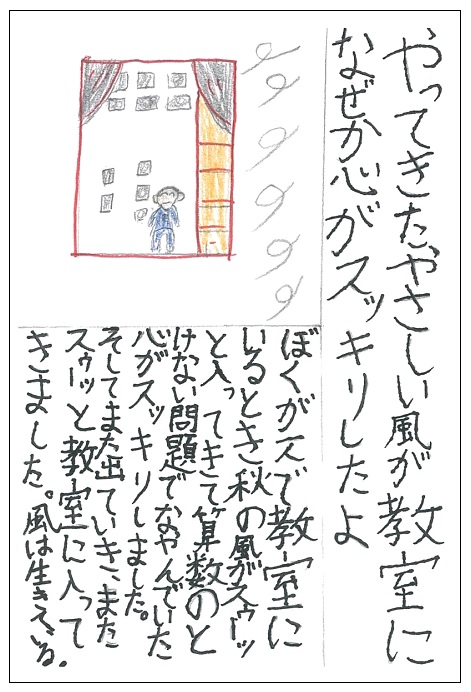 やってきたやさしい風が教室に
なぜか心がスッキリしたよ
ぼくが一人で教室に
いるとき秋の風がスゥーッ
と入ってきて算数のと
けない問題でなやんでいた
心がスッキリしました。
そしてまた出ていき、また
スゥーッと教室に入って
きました。風は生きている。